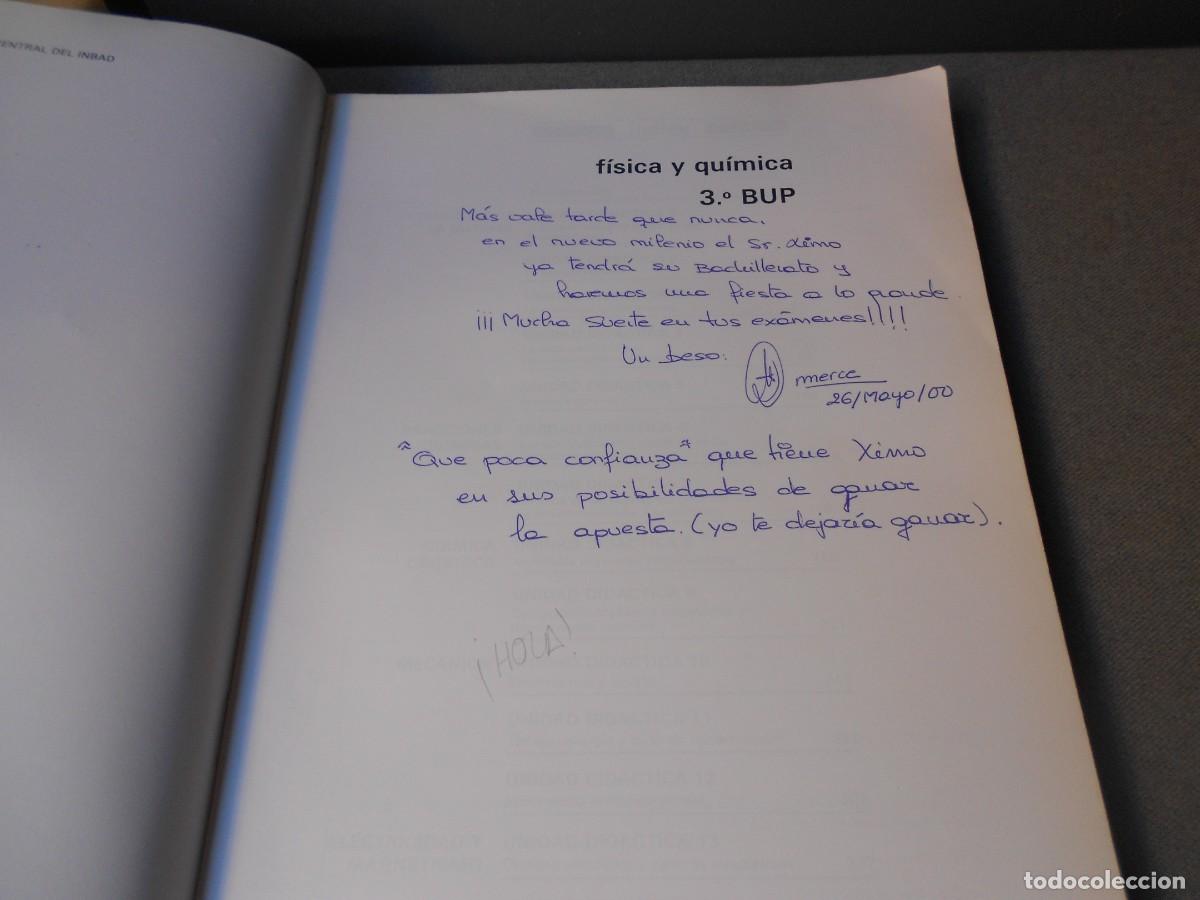 ENTRAL DEL INBAD
física y química
3.º BUP
Más vale tarde que nunca,
en el nuevo milenio el Sr. Ximo
ya tendrá su Bachillerato y
haremos una fiesta a lo grande.
¡¡¡Mucha suerte en tus exámenes!!!!
Un beso:
merce
26/Mayo/00
"Que poca confianza" que tiene Ximo
en sus posibilidades de ganar
la apuesta. (yo te dejaría ganar).
¡HOLA!
UNIDAD DIDACTICA 9
UNIDAD DIDACTICA 10
UNIDAD DIDACTICA 11
UNIDAD DIDACTICA 12
UNIDAD DIDACTICA 13
todocoleccion